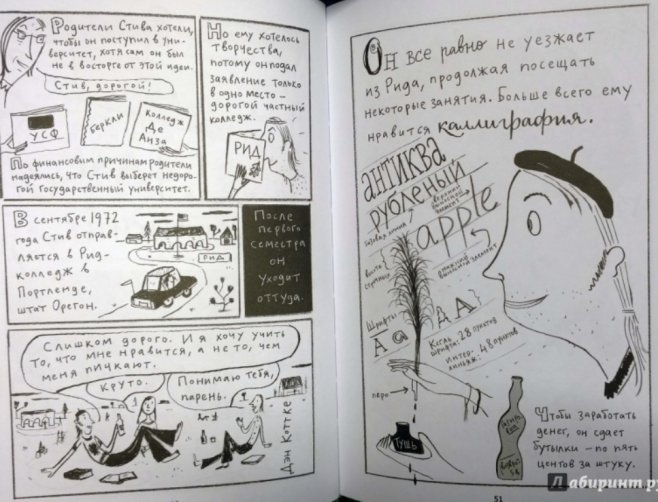 Родители Стива хотели,
чтобы он поступил в уни-
верситет, хотя сам он был
не в восторге от этой идеи.
Стив, дорогой!
УСФ
Беркли
Колледж
Де
Анза
По финансовым причинам родители
надеялись, что Стив выберет недоро-
гой государственный университет.
Но ему хотелось
творчества,
потому он подал
заявление только
в одно место –
дорогой частный
колледж.
РИД
В сентябре 1972
года Стив отправ-
ляется в Рид-
колледж в
Портленде,
штат Орегон.
РИД
После
первого
семестра
он
уходит
оттуда.
Слишком дорого. И я хочу учить
то, что мне нравится, а не то, чем
меня пичкают.
Круто.
Понимаю тебя,
парень.
Дэн Коттке
Он все равно не уезжает
из Рида, продолжая посещать
некоторые занятия. Больше всего ему
нравится каллиграфия.
антиква
рубленый
верхний
выносной
элемент
базовая линия
apple
нижний
выносной элемент
Шрифты
А а
А А
Кегль
шрифта: 28 пунктов
Интер-
линьяж: 48 пунктов
перо
Тушь
Чтобы заработать
денег, он сдает
бутылки – по пять
центов за штуку.
51
Лабиринт.ру